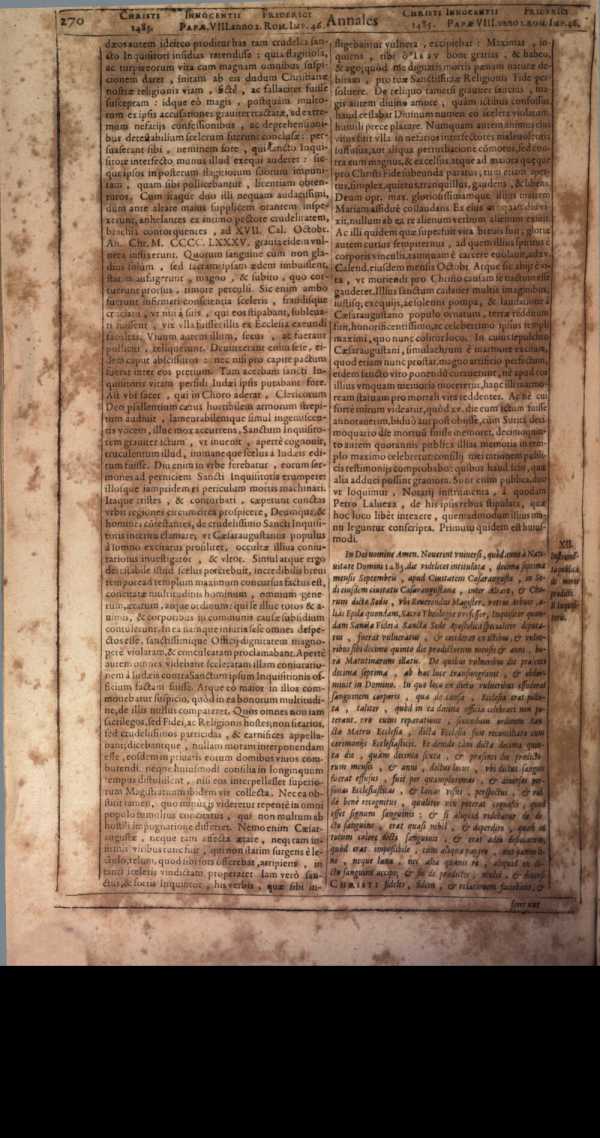 270 CHRISTI INNOCENTII FRIDERICI Annales CHRISTI INNOCENTII FRIDERICI
1485. PAPÆ VIII. ANNO 2. ROM. IMP. 46. 1485. PAPÆ VIII. ANNO 2. ROM. IMP. 46.
dæos autem ideirco proditur has tam crudeles san-
cto Inquisitori insidias tetendisse : quia flagitiosa,
ac turpis eorum vita cum magnam omnibus suspi-
cionem daret, initam ab eis dudum Christianæ
nostræ religionis viam, fictè, ac fallaciter fuisse
susceptam : idque eò magis, postquam multo-
rum ex ipsis accusationes grauiter tractatæ, ad extre-
mum nefarijs confessionibus, ac deprehensioni-
bus detestabilium scelerum fuerunt conclusæ : per-
suaserant sibi, neminem fore, qui sancto Inqui-
sitore interfecto munus illud exequi auderet : sic-
que ipsos in posterum flagitiorum suorum impuni-
tam, quam sibi pollicebantur, licentiam obten-
turos. Cùm itaque duo illi nequam audacissimi,
dum ante altare maius supplicem orantem inspe-
xerunt, anhelantes ex intimo pectore crudelitatem,
brachia contorquentes, ad XVII. Cal. Octobr.
An. Chr. M. CCCC. LXXXV. grauia eidem vul-
nera inflixerunt. Quorum sanguine cum non gla-
dios solùm, sed sacram ipsam ædem imbuissent,
statim aufugerunt, magno, & subito, quo cor-
ruerunt prorsus, timore perculsi. Sic enim ambo
fuerunt infirmati conscientia sceleris, fraudisque
cruciati, vt nisi à suis, qui eos stipabant, subleua-
ti fuissent, vix vlla fuisset illis ex Ecclesia exeundi
facultas. Viuum autem illum, secus, ac fuerant
polliciti, reliquerunt. Deuinxerant enim sese, ei-
dem caput abscissuros : nec nisi pro capite pactum
fuerat inter eos pretium. Tam acerbam sancti In-
quisitoris vitam perfidi Iudæi ipsis putabant fore.
Ast vbi iacet, qui in Choro aderat, Clericorum
Deo psallentium cætus horribilem armorum strepi-
tum audiuit, lamentabilemque simul ingemiscen-
tis vocem, illuc mox accurrens, Sanctum Inquisito-
rem grauiter ictum, vt inuenit, apertè cognouit,
truculentum illud, immaneque scelus à Iudæis edi-
tum fuisse. Diu enim in vrbe ferebatur, eorum ser-
mones ad perniciem Sancti Inquisitoris erumpere
illosque iampridem ei periculum mortis machinari.
Itaque tristes, & conturbati, cœperunt cunctas
vrbis regiones circumcirca prospicere, Deumque, &
homines cõtestantes, de crudelissimo Sancti Inquisi-
toris interitu clamare, vt Cæsaraugustanus populus
à somno excitatus prosiliret, occultæ illius coniu-
rationis inuestigator, & vltor. Simul atque ergo
detestabile istud scelus percrebuit, incredibili breui
tempore ad templum maximum concursus factus est,
concitatæ multitudinis hominum, omnium gene-
rum, ætatum, atque ordinum : qui se illuc totos & a-
nimis, & corporibus in communis causæ subsidium
contulerunt. In ea namque iniuria sese omnes despe-
ctos esse, sanctissimique Officij dignitatem magno-
perè violatam, & conculcatam proclamabant. Apertè
autem omnes videbant sceleratam illam coniuratio-
nem à Iudæis contra Sanctum ipsum Inquisitionis of-
ficium factam fuisse. Atque eo maior in illos com-
mouebatur suspicio, quòd in ea bonorum multitudi-
ne, de illis nullus compareret. Quos omnes non iam
sacrilegos, sed Fidei, ac Religionis hostes; non sicarios,
sed crudelissimos parricidas, & carnifices appella-
bant; dicebantque, nullam moram interponendam
esse, eosdem in priuatis eorum domibus viuos com-
burendi, neque huiusmodi consilia in longinquum
tempus distulissent, nisi eos interpellasset superio-
rum Magistratuum ibidem vis collecta. Nec ea ob-
stitit tamen, quo minus videretur repentè in omni
populo tumultus concitatus, qui non multum ab
hostili impugnatione differret. Nemo enim Cæsar-
augustæ, neque tam affecta ætate, neque tam in-
firmis viribus tunc fuit, qui non statim surgens è le-
ctulo, telum, quod sibi sors offerebat, arripiens, in
tanti sceleris vindictam properaret. Iam verò san-
ctus, & fortis Inquisitor, his verbis, quæ sibi in-
fligebantur vulnera, excipiebat : Maximas, in-
quiens, tibi ô Iesv bone gratias, & habeo,
& ago; quòd me dignaris, mortis pœnam naturæ de-
bitam, pro tuæ Sanctissimæ Religionis Fide per-
soluere. De reliquo tametsi grauiter saucius, ma-
gis autem diuino amore, quàm ictibus confossus,
haud cessabat Diuinum numen eo scelere violatum,
humili prece placare. Numquam autem animus eius
visus fuit vlla in nefarios interfectores maleuolentia
suffusus, aut aliqua perturbatione cõmotus, sed con-
tra eum magnus, & excelsus, atque ad maiora quæque
pro Christi Fide subeunda paratus, tum etiam aper-
tus, simplex, quietus, tranquillus, gaudens, & libens
Deum opt. max. gloriosissimamque illius matrem
Mariam assiduè collaudans. Ex eius autem ore, dum vi-
xit, nullum ab ea re alienum verbum aliquem exiuit.
Ac illi quidem quæ superfuit vita breuis fuit; gloriæ
autem cursus sempiternus, ad quem illius spiritus è
corporis vinculis, tamquam è carcere euolauit, ad xv.
Calend. eiusdem mensis Octobr. Atque sic abijt è vi-
ta, vt moriendi pro Christo causam se nactum esse
gauderet. Illius sanctum cadauer multis imaginibus,
iustisque exequijs, ac solenni pompa, & laudatione à
Cæsaraugustano populo ornatum, terræ redditum
fuit, honorificentissimo, ac celeberrimo ipsius templi
maximi, quo nunc colitur loco. In cuius sepulchro
Cæsaraugustani, simulachrum è marmore excisum,
quod etiam nunc prostat, magno artificio perfectum,
eidem sancto viro ponendũ curauerunt, nè apud eos
illius vmquam memoria moreretur, hanc illi immo-
ream statuam pro mortali vita reddentes. Ac nè cui
fortè mirum videatur, quòd xv. die eum ictum fuisse
annotauerim, biduò aut post obijsse, cùm Surita deci-
moquarto die mortuũ fuisse memoret, decimoquin-
to autem quotannis publica illius memoria in tem-
plo maximo celebretur: consilij mei rationem publi-
cis testimonijs comprobabo: quibus haud scio, quæ
alia adduci possint grauiora. Sunt enim publica, duo
vt loquimur, Notarij instrumenta, à quodam
Petro Lalueza, de his ipsis rebus stipulata, quæ
hoc loco libèt intexere, quemadmodum illius ma-
nu leguntur conscripta. Primum quidem est huius-
modi.
In Dei nomine Amen. Nouerint vniuersi, quòd anno à Nati-
uitate Domini 1485. die videlicet intitulata, decima septima
mensis Septembris, apud Ciuitatem Cæsaraugustæ, in Se-
di eiusdem ciuitatis Cæsaraugustanæ, inter Altare, & Cho-
rum dictæ Sedis, vbi Reuerendus Magister, Petrus Arbues, a-
liàs Epila quondam, Sacræ Theologiæ professor, Inquisitor quon-
dam Sanctæ Fidei à Sancta Sede Apostolica specialiter deputa-
tus, fuerat vulneratus, & ceciderat ex ictibus, & vulne-
ribus sibi decima quinta die prædictorum mensis & anni, ho-
ra Matutinarum illatis. De quibus vulneribus die præsenti
decima septima, ab hac luce transmigrauit, & obdor-
miuit in Domino. In quo loco ex dictis vulneribus effuderat
sanguinem corporis, qua de causa, Ecclesia erat pollu-
ta, taliter, quòd in ea diuina officia celebrari non po-
terant. pro cuius reparatione, secundum ordinem San-
ctæ Matris Ecclesiæ, dicta Ecclesia fuit reconciliata cum
cerimonijs Ecclesiasticis. Et demùm tàm dicta decima quin-
ta die, quàm decima sexta, & præsenti die prædicto-
rum mensis, & anni, dictus locus, vbi dictus sanguis
fuerat effusus, fuit per quamplurimas, & diuersas per-
sonas Ecclesiasticas, & laicas visus, perspectus, & val-
dè benè recognitus, qualiter vix poterat cognosci, quòd
esset signum sanguinis; & si aliquid videbatur de di-
cto sanguine, erat quasi nihil, & deperditum, quoad to-
tum colorem dicti sanguinis, & erat adeò desiccatum,
quòd erat impossibile, cum aliqua papyro, aut panno li-
no, neque lana, nec alia quauis re, aliquid ex di-
cto sanguine accipi; & sic de prædictis, multi, & diuersi
CHRISTI fideles, fidem, & relationem faciebant, &
fuerunt
XII.
Instrumẽ-
ta publica
de morte
prædicti
B. Inquisi-
toris.